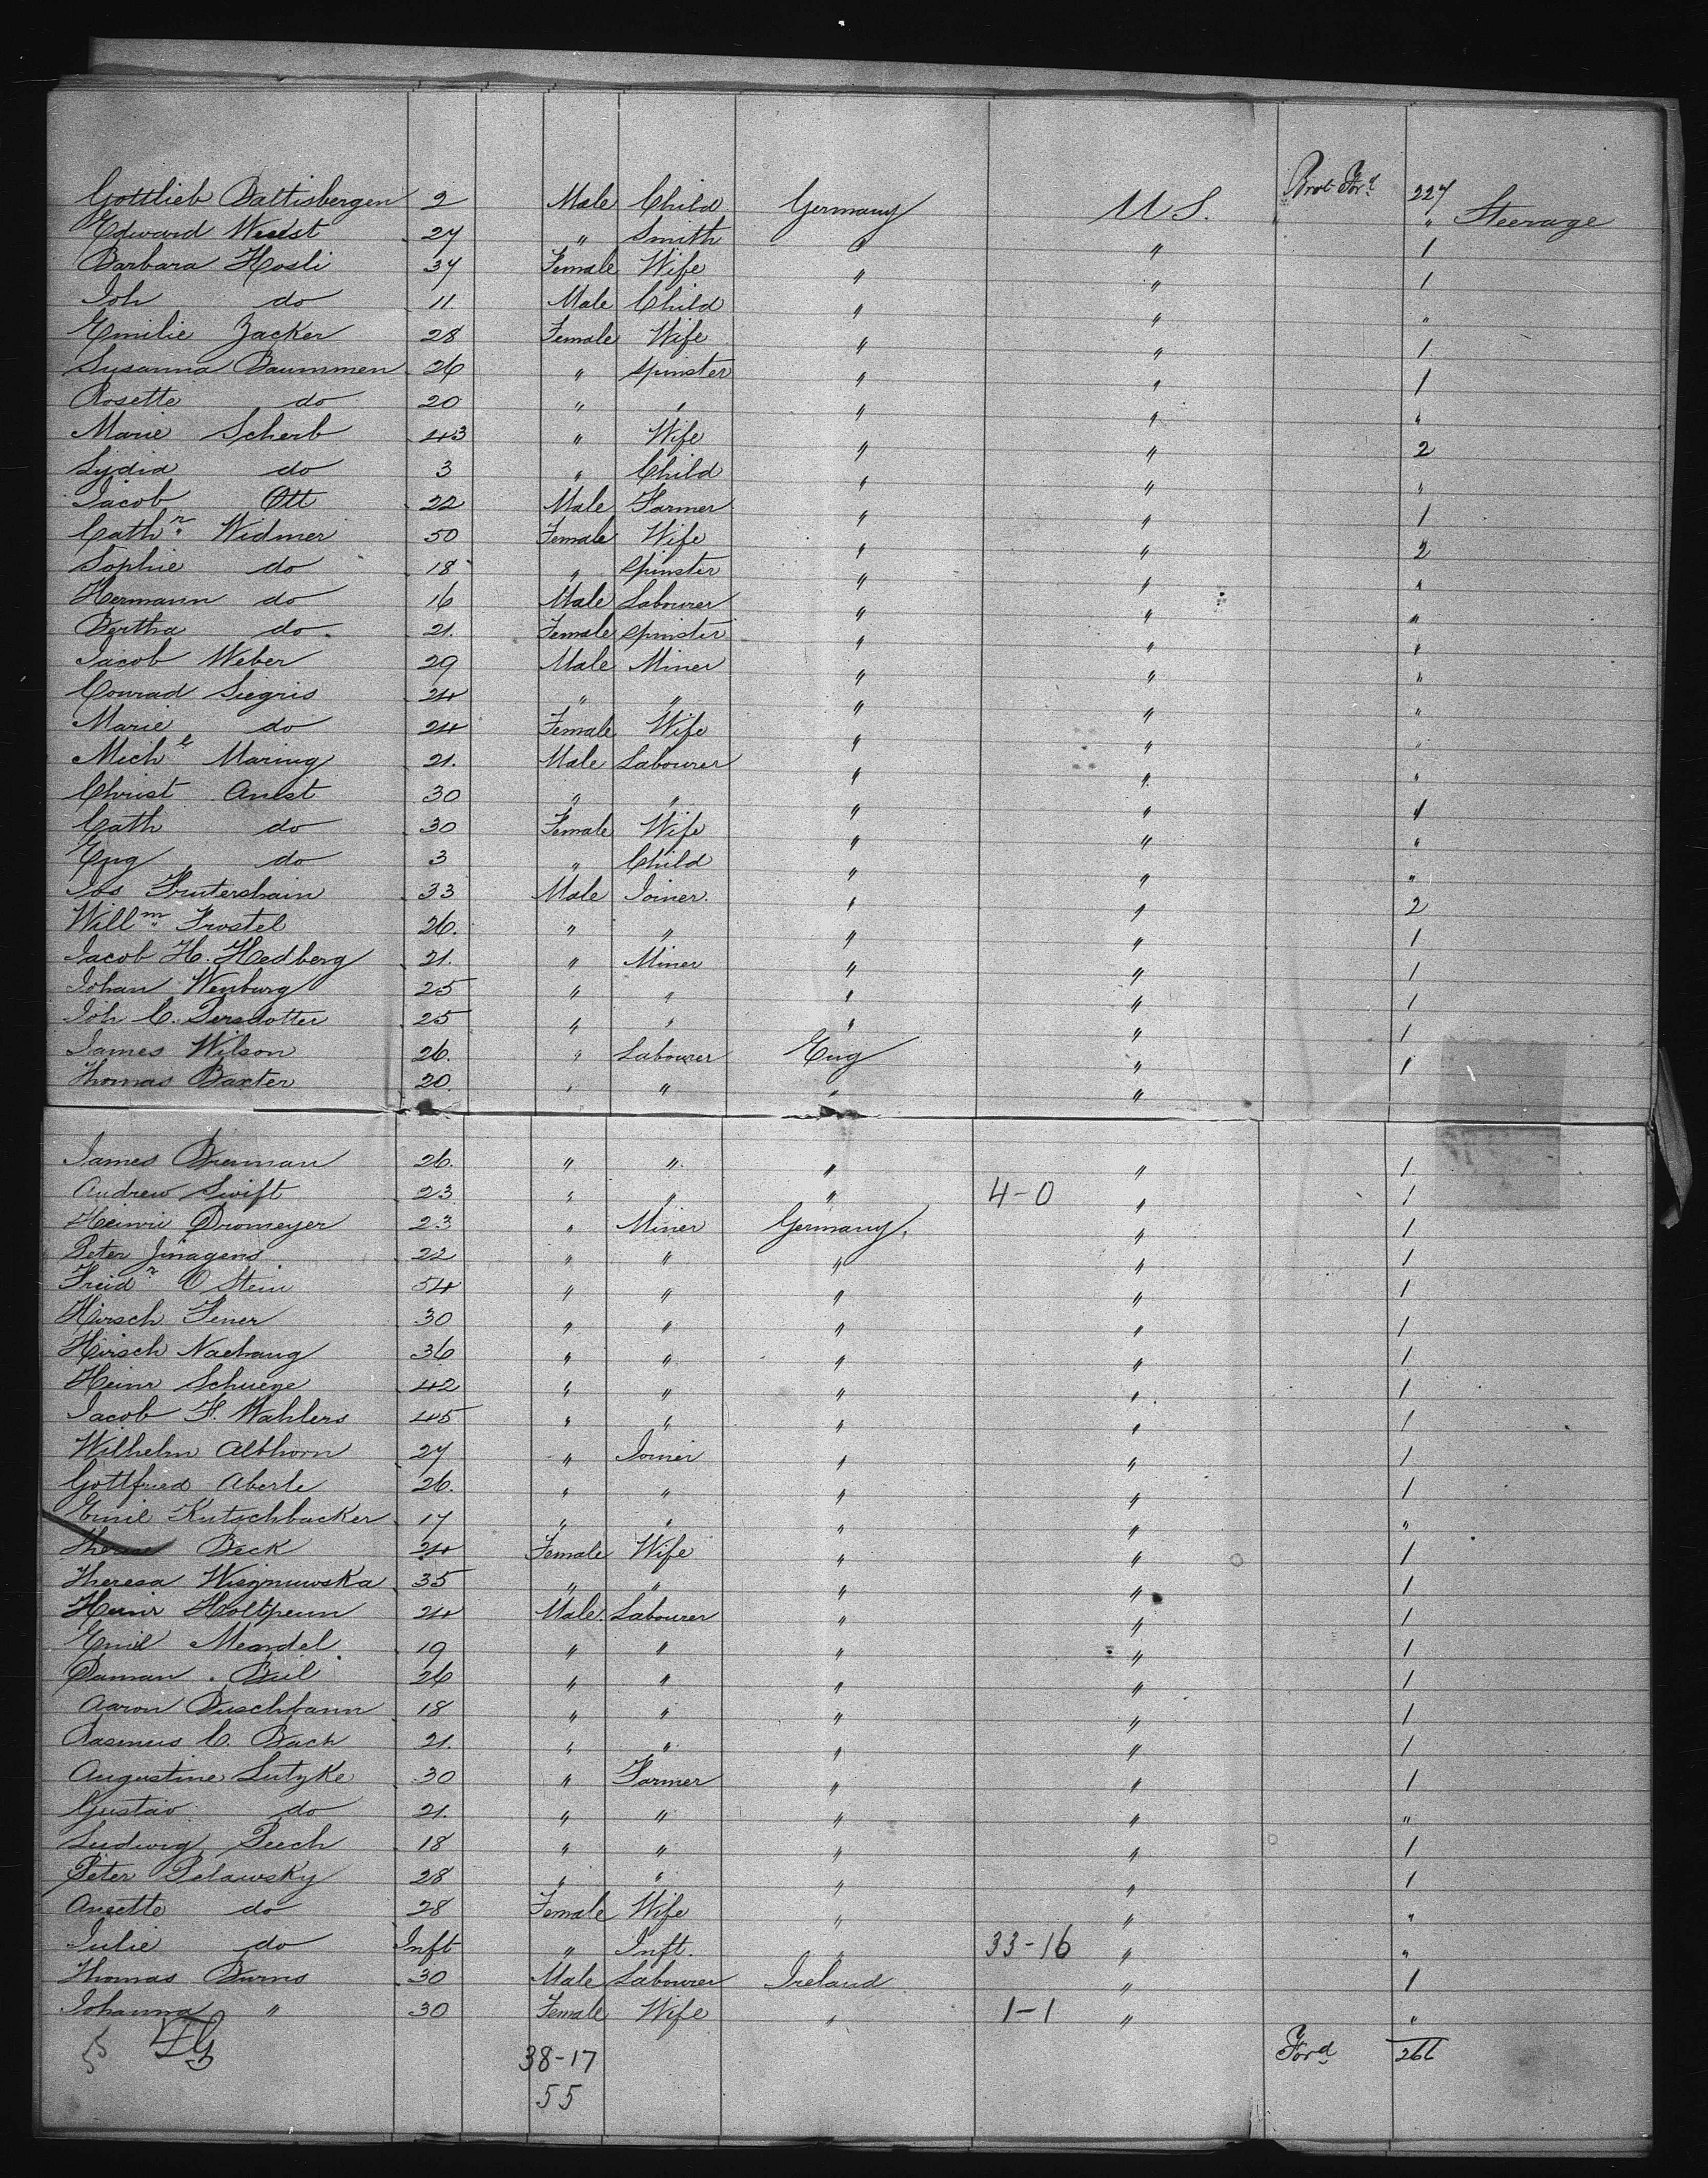 Brot Ford 227
Gottlieb Baltisbergen 2 Male Child Germany U S. " Steerage
Edward Wuest 27 " Smith " " 1
Barbara Hosli 37 Female Wife " " 1
Joh do 11 Male Child " " "
Emilie Zacker 28 Female Wife " " 1
Susanna Baummen 26 " Spinster " " 1
Rosette do 20 " " " " "
Marie Scherb 43 " Wife " " 2
Lydia do 3 " Child " " "
Jacob Ott 22 Male Farmer " " 1
Cathr Widmer 50 Female Wife " " 2
Sophie do 18 " Spinster " " "
Hermann do 16 Male Labourer " " "
Bertha do 21. Female Spinster " " "
Jacob Weber 29 Male Miner " " "
Conrad Siegris 24 " " " " "
Marie do 24 Female Wife " " "
Michl Maring 21. Male Labourer " " "
Christ Anest 30 " " " "
Cath do 30 Female Wife " " "
Eug do 3 " Child " " "
Jos 33 Male Joiner. " " 2
Willm Frostel 26. " " " " 1
Jacob H. Hedberg 21. " Miner " " 1
Johan Wenburg 25 " " " " 1
Joh C. Persdotter 25 " " " " 1
James Wilson 26. " Labourer Eng " 1
Thomas Baxter 20. " " " "
James Brennan 26. " " " " 1
Andrew Swift 23 " " " 4-0 " 1
Heinri Dromeyer 23 " Miner Germany. " 1
Peter Jinagens 22 " " " " 1
Freidr O Stein 54 " " " " 1
Hirsch Fener 30 " " " " 1
Hirsch Nachaug 36 " " " " 1
Heinr Schueze 42 " " " " 1
Jacob F. Wahlers 45 " " " " 1
Wilhelm Albhorn 27 " Joiner " " 1
Gottfried Aberle 26. " " " " 1
Emil Kutschbacker 17 " " " " "
Therese Beck 24 Female Wife " " 1
Theresa Wisznuwska 35 " " " " 1
Heinr Holtpenn 24 Male Labourer " " 1
Emil Mendel 19 " " " " 1
Daman Beil 26 " " " " 1
Aaron Buschbann 18 " " " " 1
Rasmus C. Bach 21. " " " " 1
Augustine Lutzke 30 " Farmer " " 1
Gustav do 21. " " " " "
Ludwig Peech 18 " " " " 1
Peter Pelawsky 28 " " " " 1
Anette do 28 Female Wife " " "
Julie do Inft " Inft. " 33-16 " "
Thomas Burns 30 Male Labourer Ireland " 1
Johanna " 30 Female Wife " 1-1 " "
55 38-17 Ford 266
55